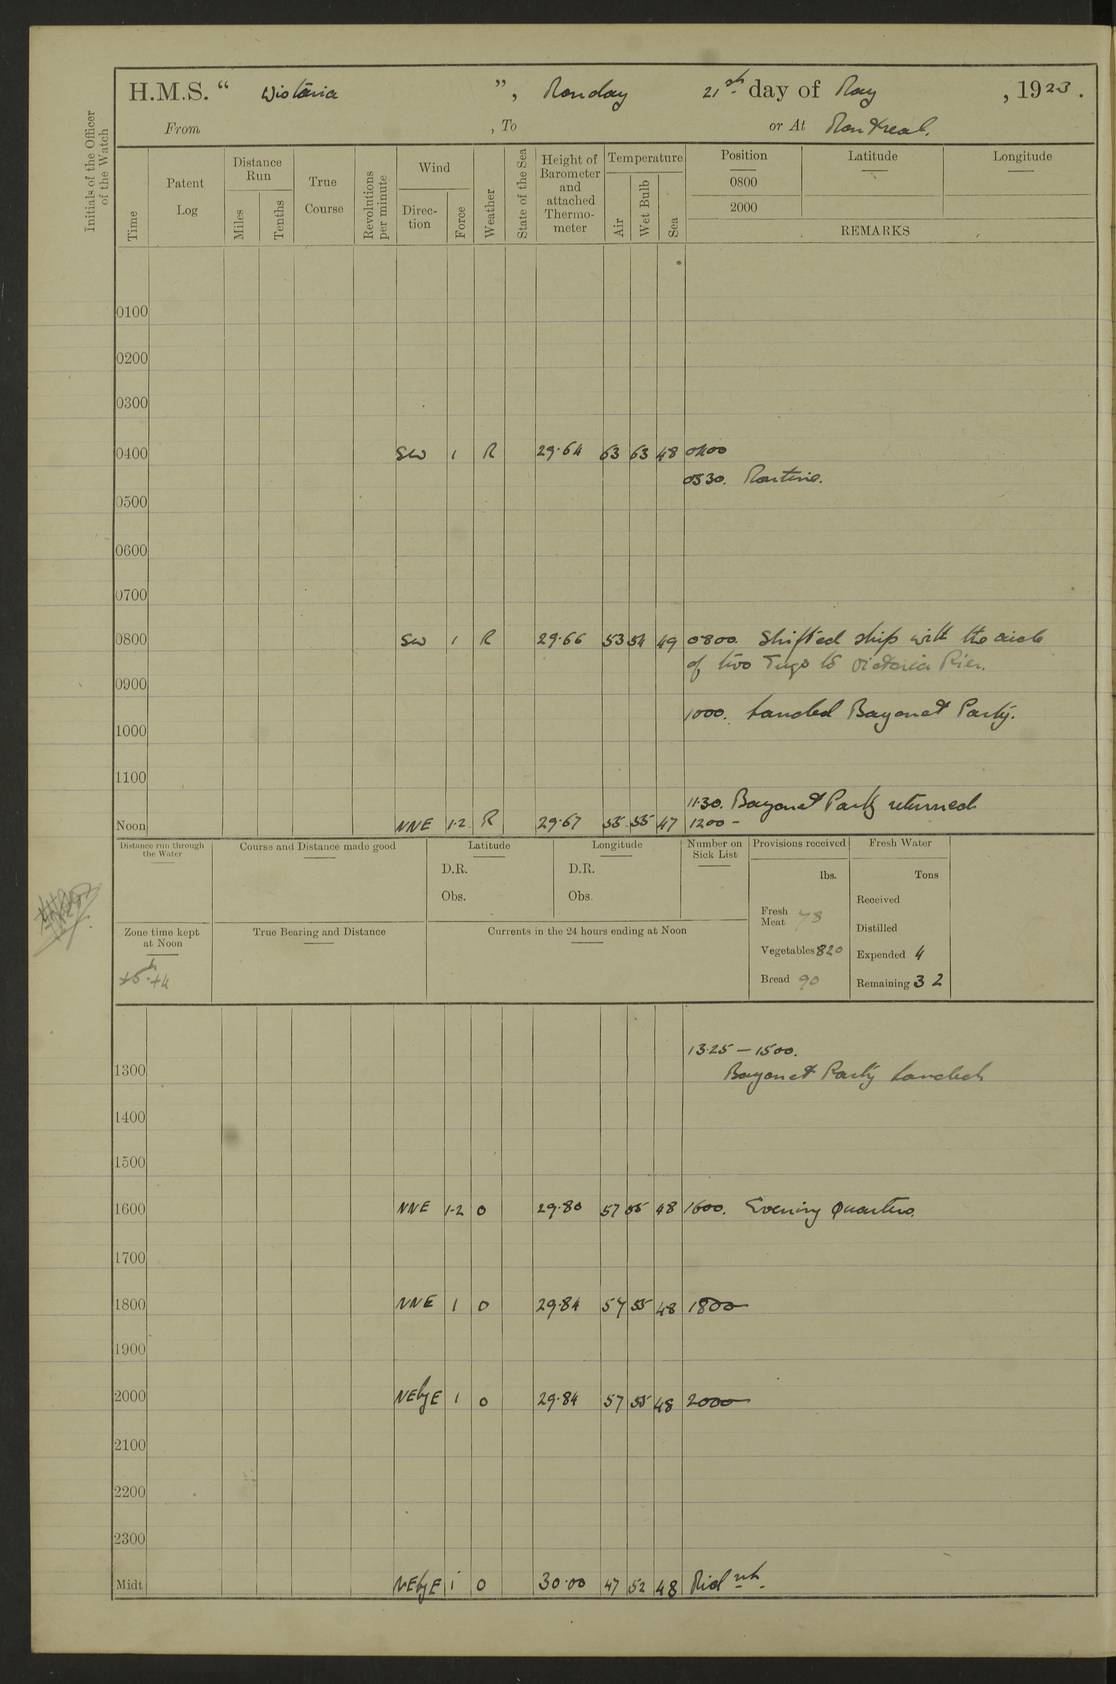 H.M.S. “ Wistaria ”, Monday 21st day of May , 1923 .
From , To or At Montreal.
Initials of the Officer of the Watch
Time
Patent Log
Distance Run
Miles
Tenths
True Course
Revolutions per minute
Wind
Direc-tion
Force
Weather
State of the Sea
Height of Barometer and attached Thermo-meter
Temperature
Air
Wet Bulb
Sea
Position
0800
2000
Latitude
Longitude
REMARKS
0100
0200
0300
0400 SW 1 R 29.64 63 63 48 0400
0530. Routine.
0500
0600
0700
0800 SW 1 R 29.66 53 54 49 0800. Shifted ship with the aid
of two Tugs to Victoria Pier.
0900
1000. Landed Bayonet Party.
1000
1100
11.30. Bayonet Party returned
Noon NNE 1-2 R 29.67 55 55 47 1200 -
Distance run through the Water
Course and Distance made good
Latitude
D.R.
Obs.
Longitude
D.R.
Obs.
Number on Sick List
Provisions received
lbs.
Fresh Meat 78
Vegetables 820
Bread 90
Fresh Water
Tons
Received
Distilled
Expended 4
Remaining 32
Zone time kept at Noon
+5h +4
True Bearing and Distance
Currents in the 24 hours ending at Noon
13.25 - 1500.
1300 Bayonet Party landed
1400
1500
1600 NNE 1-2 O 29.80 57 55 48 1600. Evening Quarters.
1700
1800 NNE 1 O 29.84 57 55 48 1800
1900
2000 NEbyE 1 O 29.84 57 55 48 2000
2100
2200
2300
Midt NEbyE 1 O 30.00 47 52 48 Midnt.